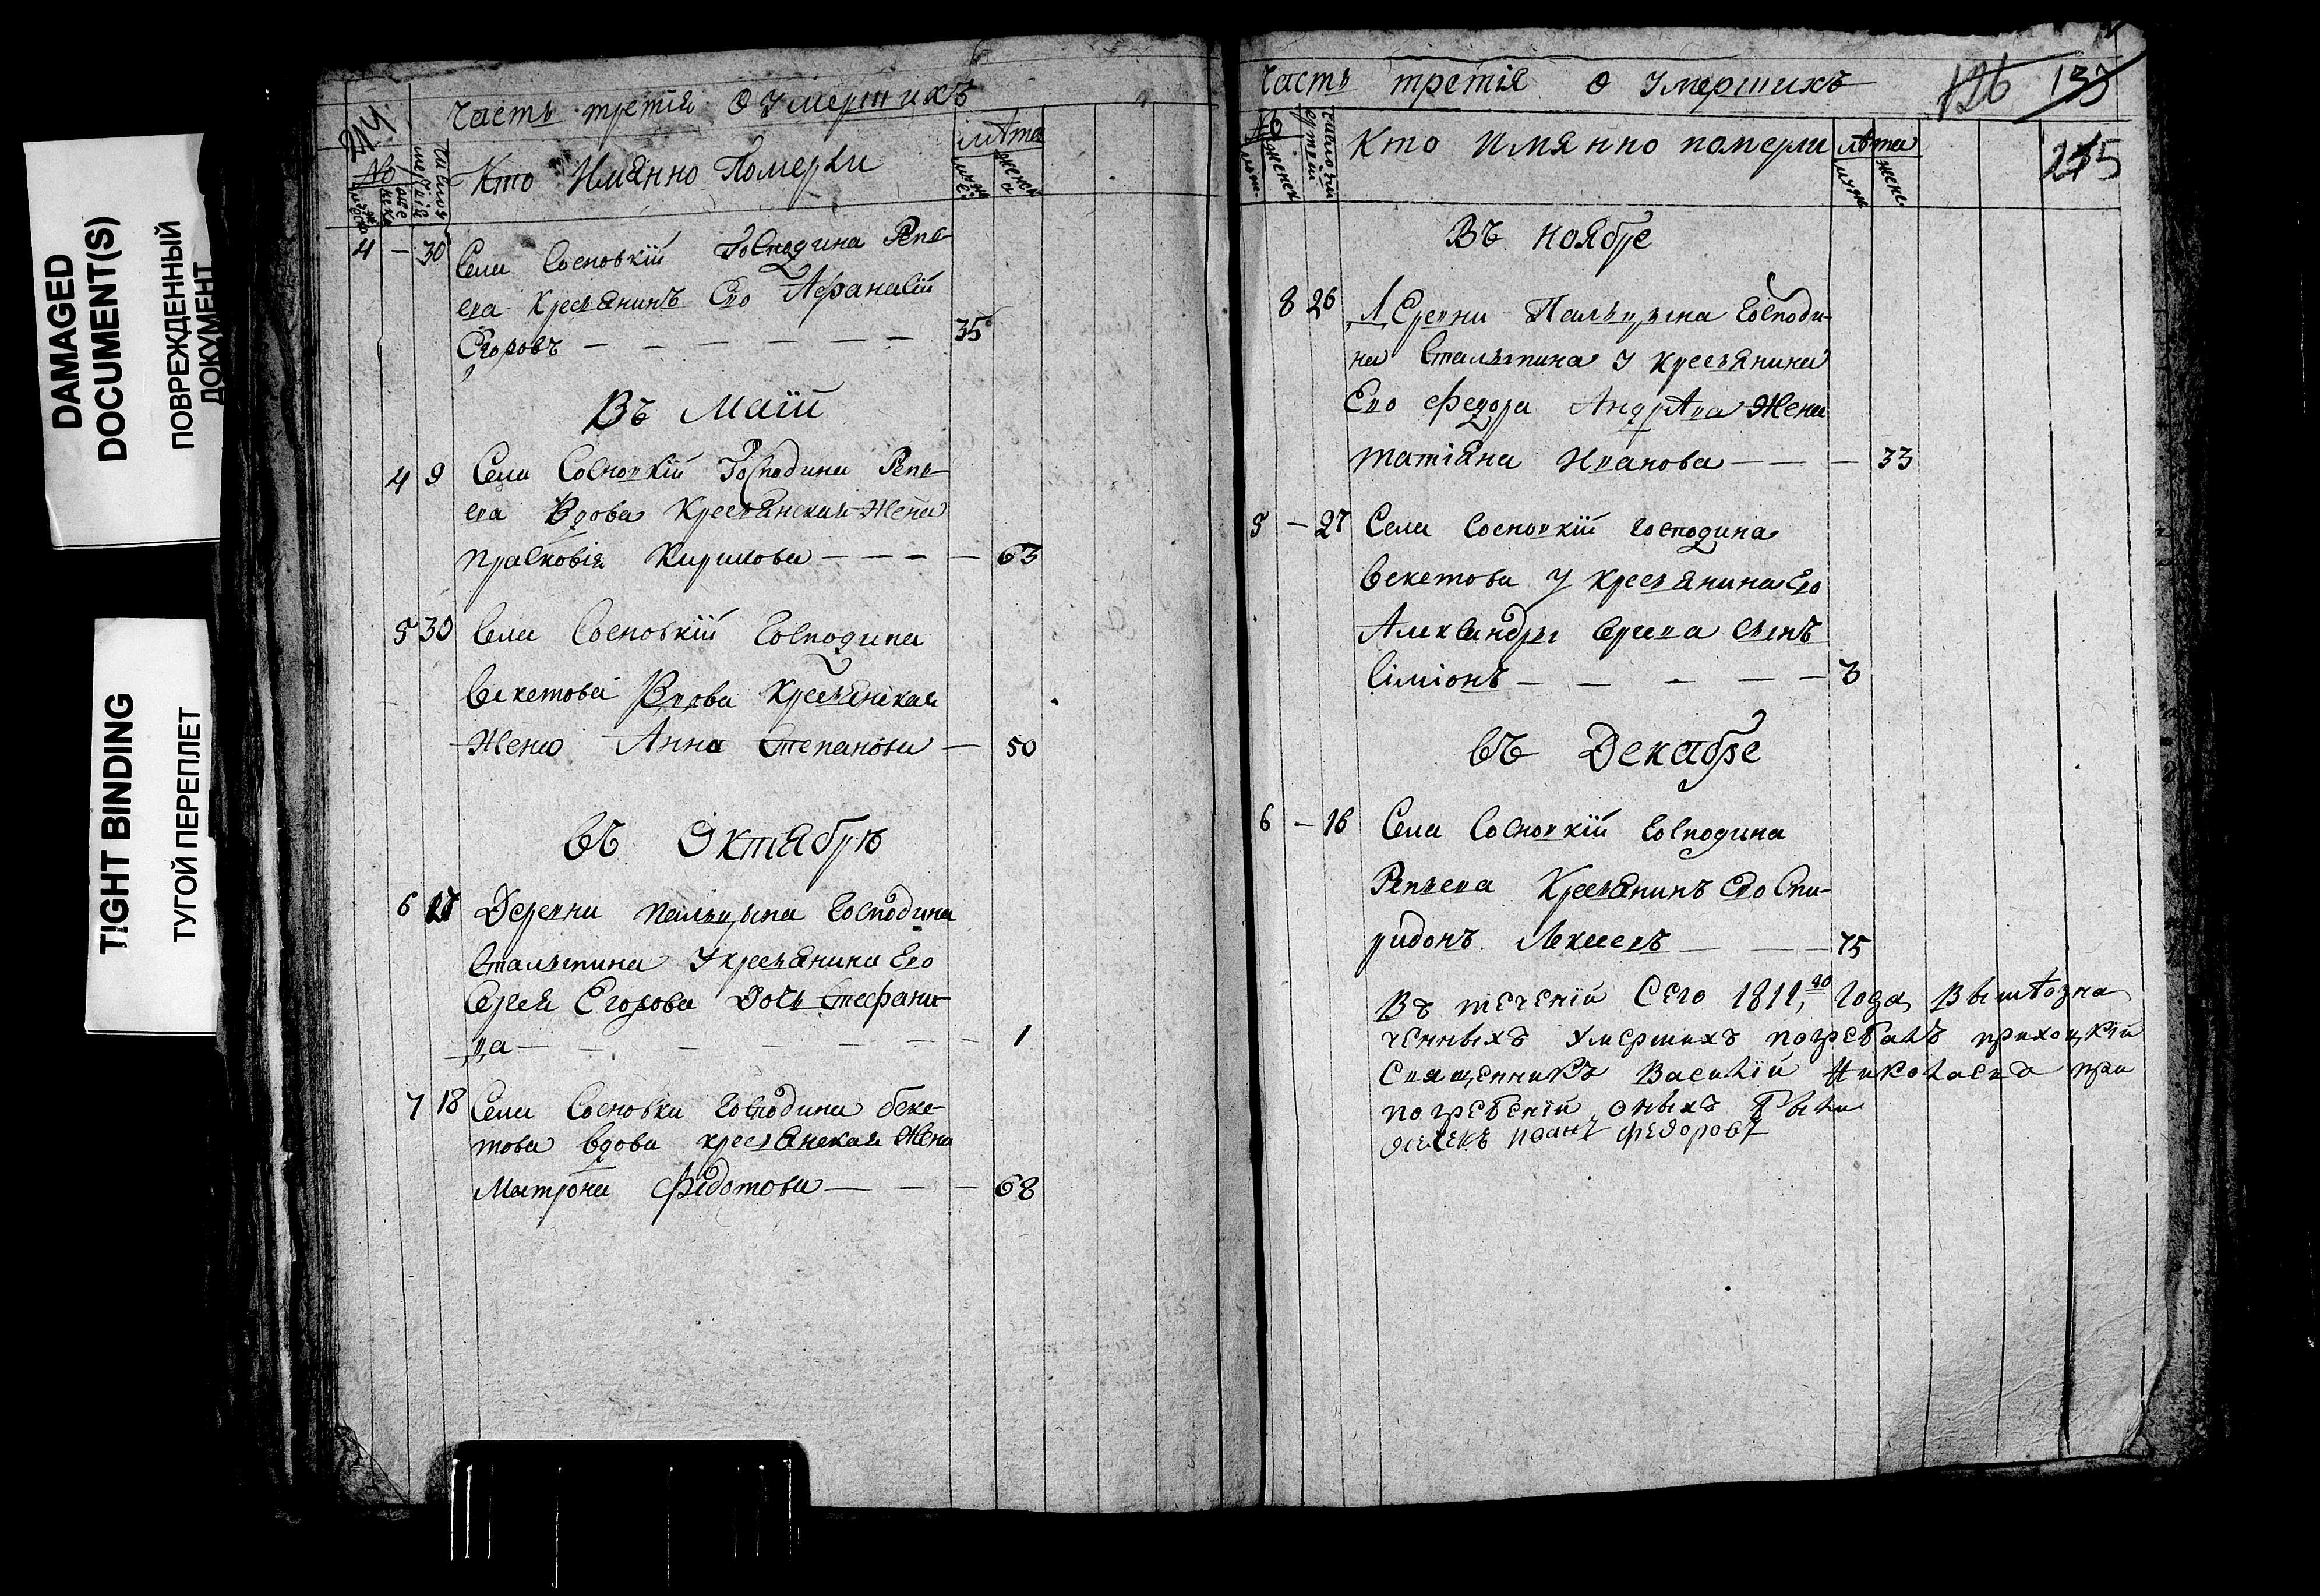 DAMAGED
DOCUMENT(S)
ПОВРЕЖДЕННЫЙ
ДОКУМЕНТ
TIGHT BINDING
ТУГОЙ ПЕРЕПЛЕТ
214
Часть третія О Умершихъ
№
Кто Имянно Померли
лѣта
4 – 30 Села Сосновкій Господина Репь-
ева Крестьянинъ Ево Афанасій
Егоровъ — — — — — — 35
Въ Маіи
4 9 Села Сосновкій Господина Репь-
ева Вдова Крестьянская Жена
Прасковія Кирилова — — — — 63
5 30 Села Сосновкій Господина
Бекетова Вдова Крестьянская
Жена Анна Степанова — 50
въ Октябрѣ
6 Деревни Пальцына Господина
Сталыпина У крестьянина Ево
Сергея Егорова Дочь Стефани-
да — — — — — — — 1
7 18 Села Сосновки Господина беке-
това вдова крестьянская Жена
Матрона Федотова — — — 68
Часть третія О Умершихъ
126 133
№
Кто Имянно померли
лѣта
215
Въ Ноябре
8 26 Деревни Пальцына Господи-
на Сталыпина У крестьянина
Ево Федора Андрѣева Жена
Татіяна Иванова — — — 33
5 – 27 Села Сосновкій Господина
бекетова У крестьянина Ево
Александры Сергева Сынъ
Симіонъ — — — — — 3
въ Декабре
6 – 16 Села Сосновкій Господина
Репьева Крестьянинъ Ево Спи-
ридонъ Лексеевъ — — — 75
Въ теченіи Сего 1811,го Года Вышѣозна
ченныхъ Умершихъ погребалъ приходцкій
Священникъ Василій Николаевъ при
погребеніи оныхъ были
дьячекъ Иванъ Федоровъ